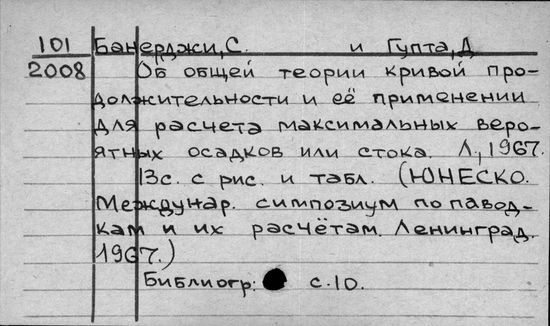 101 Банерджи, С. и Гупта, Д
2008 Об общей теории кривой про-
должительности и её применении
для расчета максимальных веро-
ятных осадков или стока. Л., 1967.
13с. с рис. и табл. (ЮНЕСКО.
Междунар. симпозиум по павод-
кам и их расчётам. Ленинград.
1967.)
Библиогр: с.10.